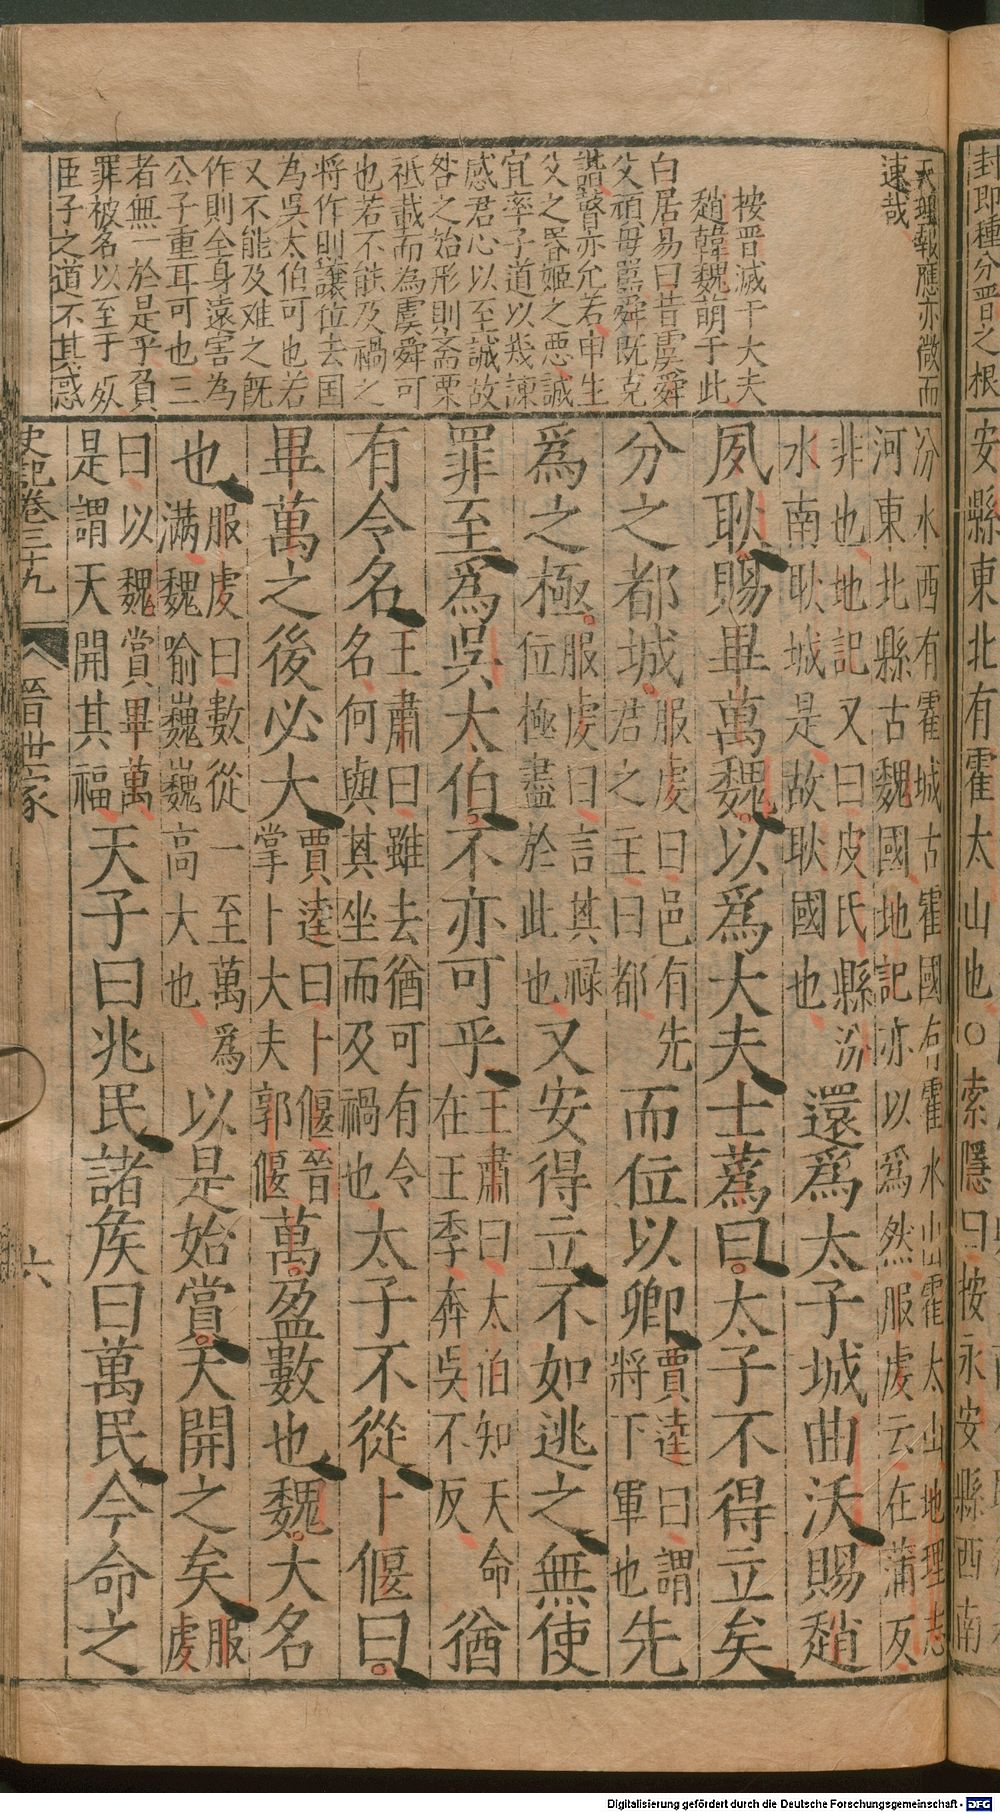 封即種分晋之根
安縣東北有霍太山也○索隱曰按永安縣西南
天理報應亦微而
速哉
按晋滅于大夫
趙韓魏萌于此
白居易曰昔虞舜
父頑母嚚舜既克
諧瞽亦允若申生
父之昏姬之惡誠
宜率子道以幾諫
感君心以至誠故
咎之始形則齋栗
祗載而為虞舜可
也若不能及禍之
將作則讓位去国
為吳太伯可也若
又不能及难之既
作則全身遠害為
公子重耳可也三
者無一於是乎負
罪被名以至于殁
臣子之道不其惑
汾水西有霍城古霍國有霍水出霍太山地理志
河東北縣古魏國地記亦以爲然服虔云在蒲反
非也地記又曰皮氏縣汾
水南耿城是故耿國也
還爲太子城曲沃賜趙
夙耿賜畢萬魏以爲大夫士蔿曰太子不得立矣
分之都城
服虔曰邑有先
君之主曰都
而位以卿
賈逵曰謂
將下軍也
先
爲之極
服虔曰言其禄
位極盡於此也
又安得立不如逃之無使
罪至爲吳太伯不亦可乎
王肅曰太伯知天命
在王季奔吳不反
猶
有令名
王肅曰雖去猶可有令
名何與其坐而及禍也
太子不從卜偃曰
畢萬之後必大
賈逵曰卜偃晉
掌卜大夫郭偃
萬盈數也魏大名
也
服虔曰數從一至萬爲
满魏喻巍巍高大也
以是始賞天開之矣
服
虔
曰以魏賞畢萬
是謂天開其福
天子曰兆民諸矦曰萬民今命之
史記卷三十九
晉世家
六
Digitalisierung gefördert durch die Deutsche Forschungsgemeinschaft - DFG